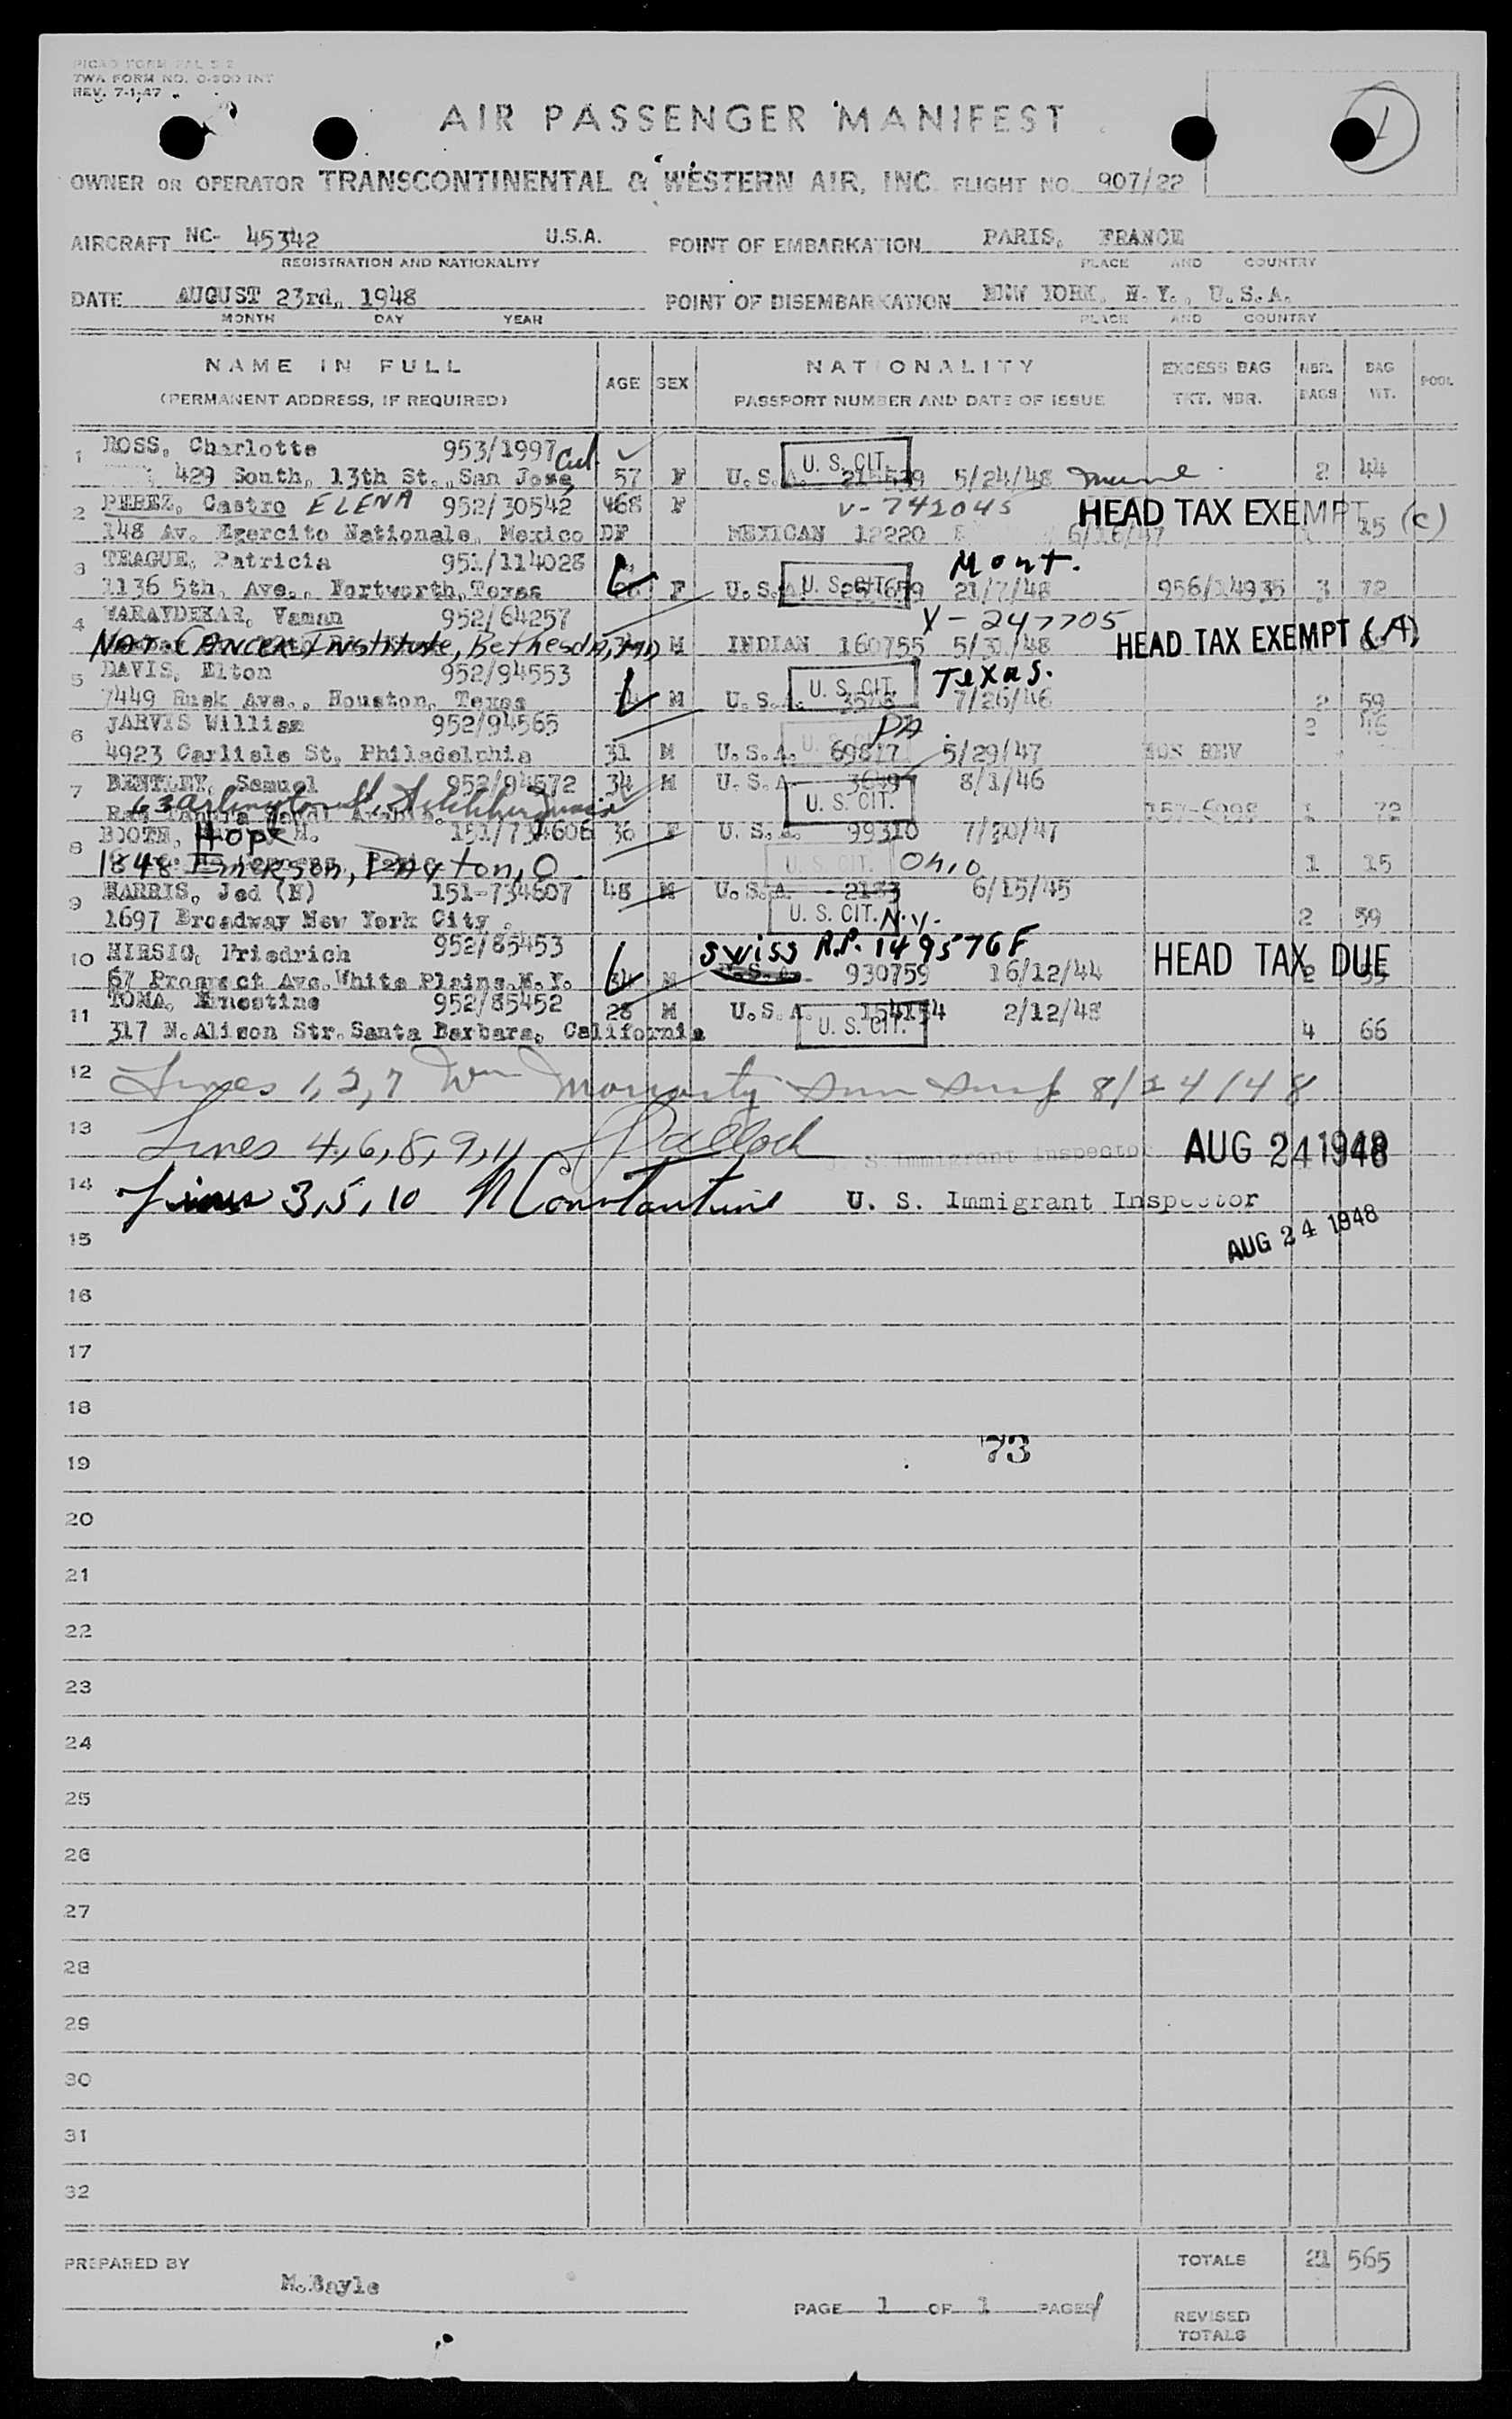 TWA FORM NO. 0-500 INT
REV. 7-1-47
1
AIR PASSENGER MANIFEST
OWNER OR OPERATOR TRANSCONTINENTAL & WESTERN AIR, INC. FLIGHT NO. 907/22
AIRCRAFT NC- 45342 U.S.A. POINT OF EMBARKATION PARIS, FRANCE
REGISTRATION AND NATIONALITY PLACE AND COUNTRY
DATE AUGUST 23rd, 1948 POINT OF DISEMBARKATION NEW YORK, N.Y., U.S.A.
MONTH DAY YEAR PLACE AND COUNTRY
NAME IN FULL AGE SEX NATIONALITY EXCESS BAG NBR. BAG POOL
(PERMANENT ADDRESS, IF REQUIRED) PASSPORT NUMBER AND DATE OF ISSUE TKT. NBR. BAGS WT.
1 ROSS, Charlotte 953/1997 Cal. U. S. CIT.
429 South, 13th St., San Jose 57 F U.S.A. 5/24/48 2 44
2 PEREZ, Castro ELENA 952/30542 68 F V-742045 HEAD TAX EXEMPT (C)
148 Av. Egercito Nationale, Mexico DF MEXICAN 12220 6/16/47 15
3 TEAGUE, Patricia 951/114028 Mont.
1136 5th, Ave., Fortworth, Texas F U.S.A. U. S. CIT. 21/7/48 956/14935 3 72
4 WARAYDEKAR, Vaman 952/64257 V-247705
NAT. CANCER INSTITUTE, Bethesda, MD M INDIAN 160755 5/31/48 HEAD TAX EXEMPT (A)
5 DAVIS, Elton 952/94553 U. S. CIT. Texas.
7449 Rusk Ave., Houston, Texas M U.S.A. 7/26/46 2 59
6 JARVIS William 952/94565 PA. 2 46
4923 Carlisle St, Philadelphia 31 M U.S.A. 69817 5/29/47
7 BENTLEY, Samuel 952/94572 34 M U.S.A. 3649 8/1/46
63 Arlington St. U. S. CIT. 157-6998 1 72
8 BOOTH, Hope H. 151/734606 36 F U.S.A. 99310 7/20/47
1848 Emerson, Dayton, O. U. S. CIT. Ohio 1 15
9 HARRIS, Jed (E) 151-734607 48 M U.S.A. 2183 6/15/45
1697 Broadway New York City. U. S. CIT. N.Y. 2 59
10 HIRSIG, Friedrich 952/85453 Swiss R.P. 149576F HEAD TAX DUE
67 Prospect Ave. White Plains, N.Y. 34 M U.S.A. 930759 16/12/44 2 55
11 TOMA, Ernestine 952/85452 28 M U.S.A. 154154 2/12/48
317 N. Alison Str. Santa Barbara, California U. S. CIT. 4 66
12 Lines 1, 2, 7 Wm Moriarty 8/24/48
13 Lines 4, 6, 8, 9, 11 U. S. Immigrant Inspector AUG 24 1948
14 Lines 3, 5, 10 N Constantine U. S. Immigrant Inspector
15 AUG 24 1948
16
17
18
19 73
20
21
22
23
24
25
26
27
28
29
30
31
32
PREPARED BY M. Bayle TOTALS 21 565
PAGE 1 OF 1 PAGES
REVISED
TOTALS